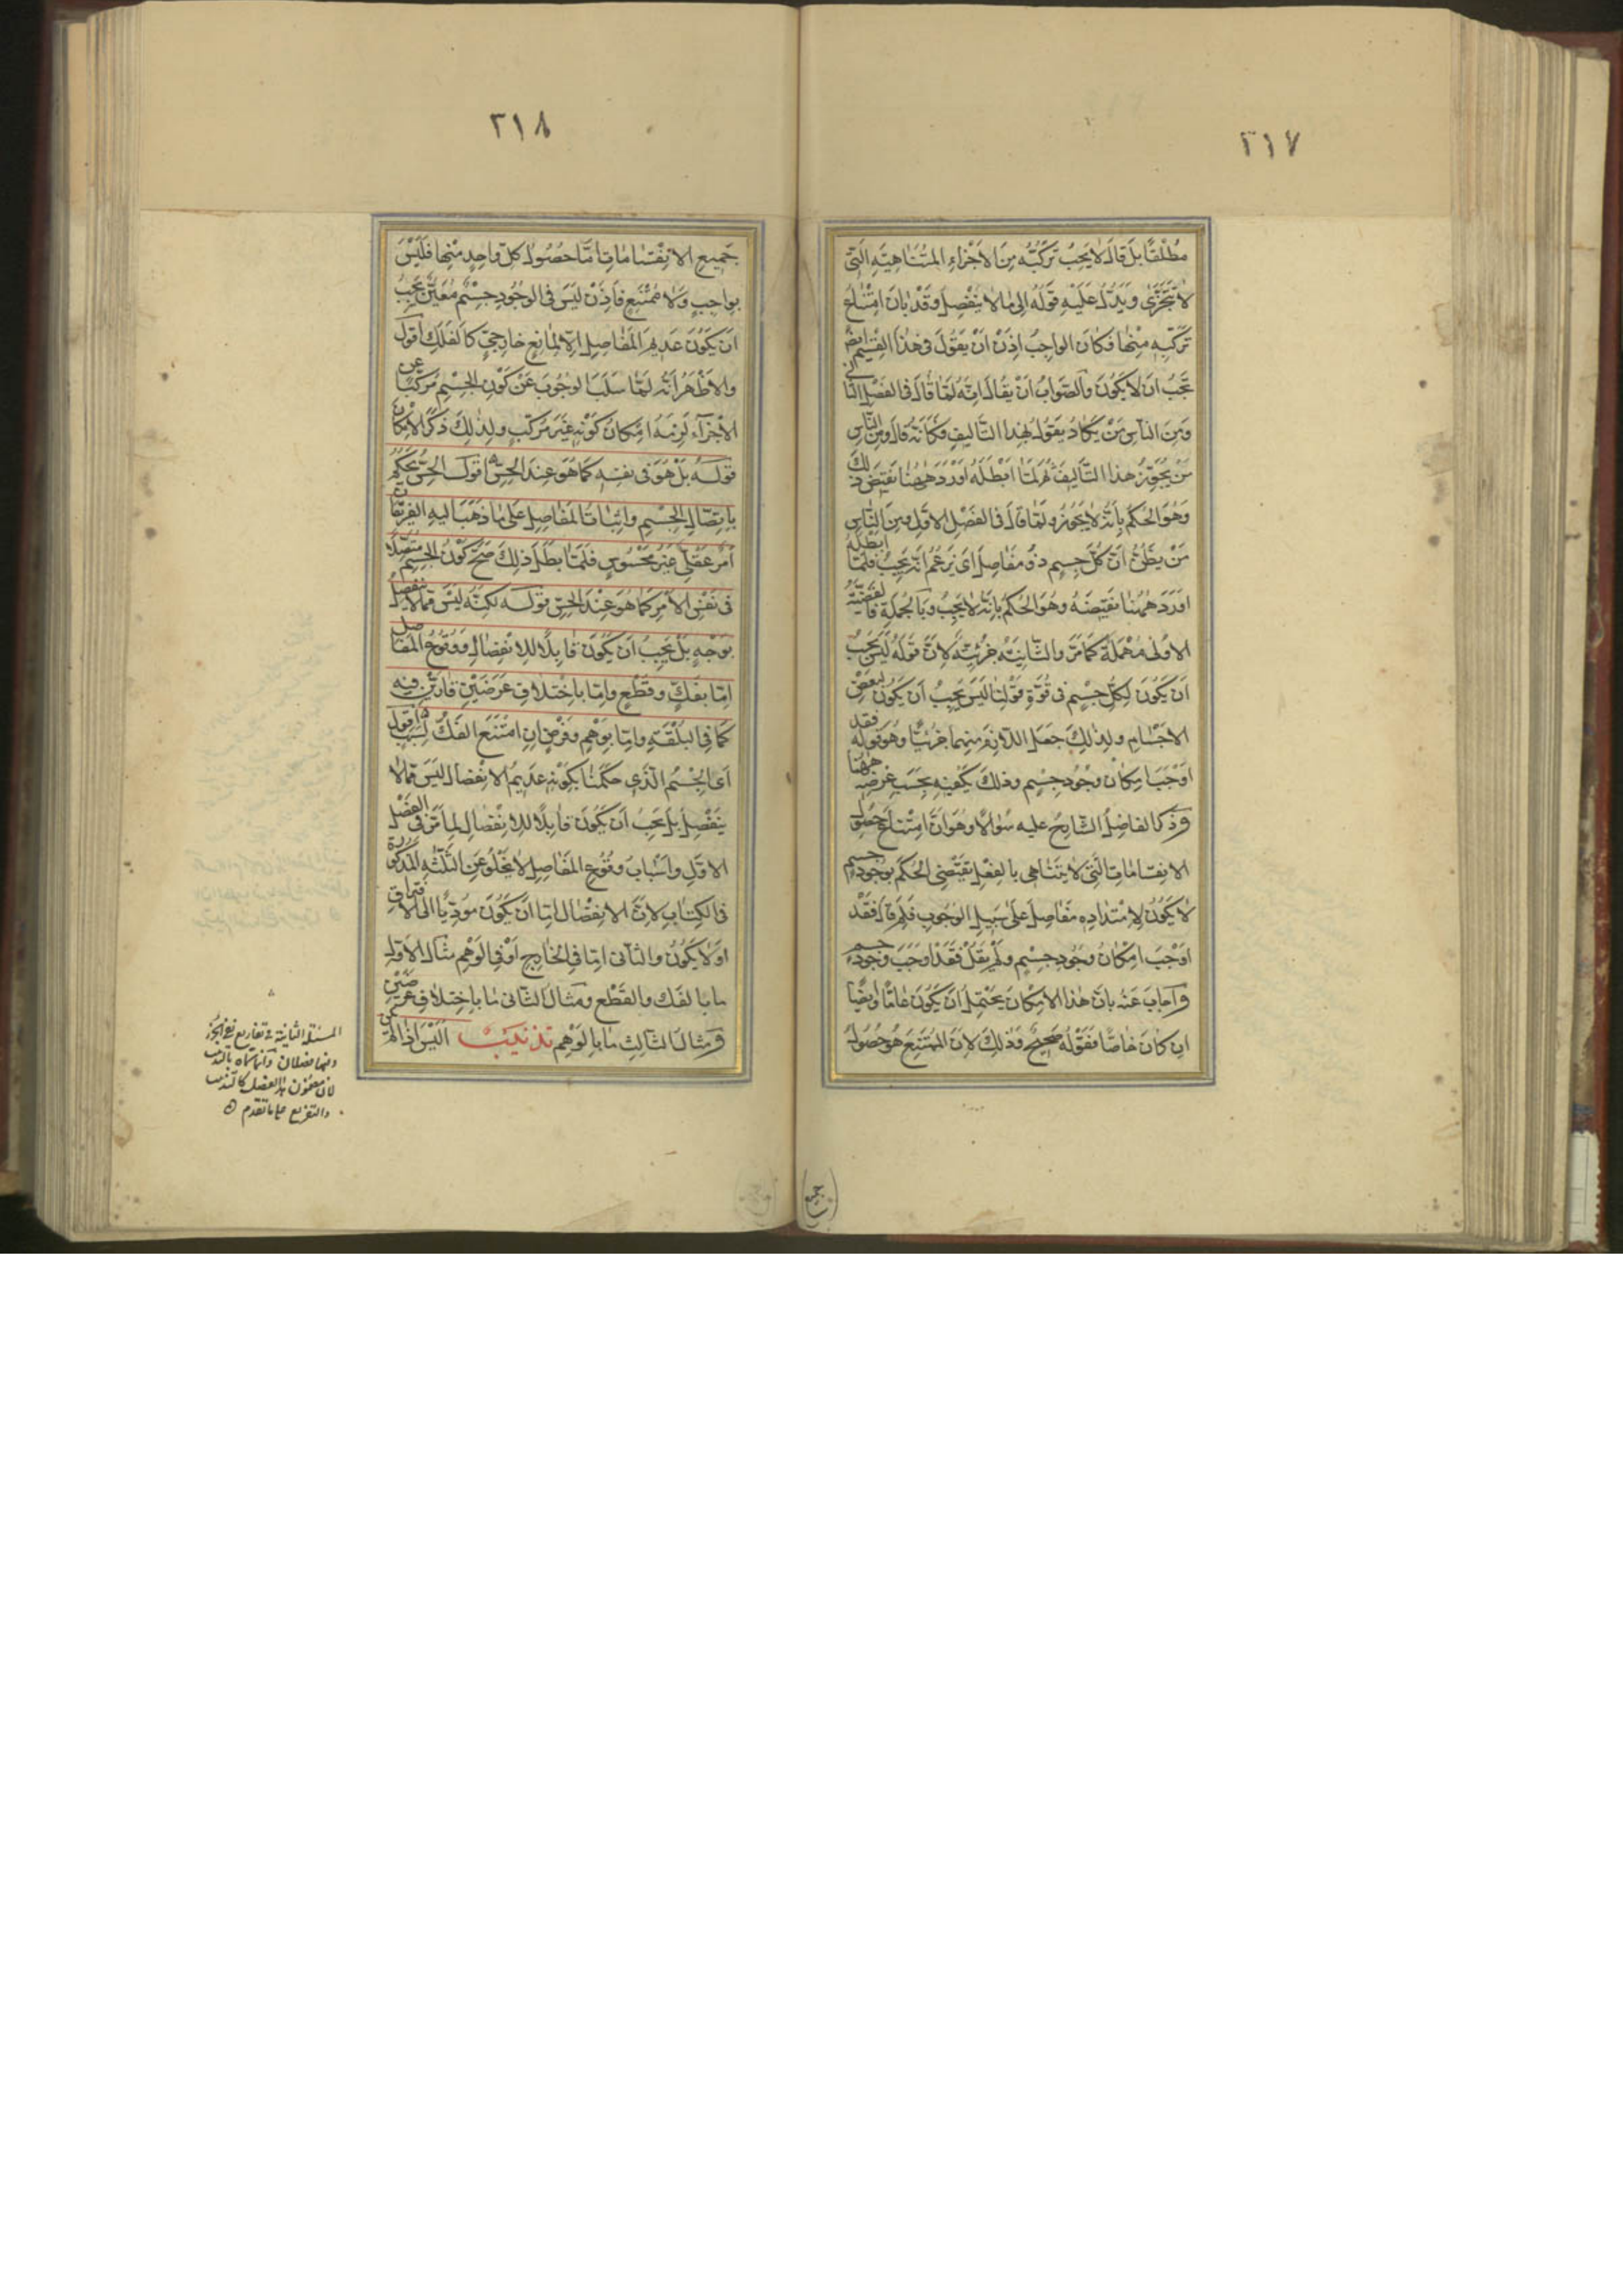 ٢١٧
مطلقا بل قال لا يجب تركبه من الاجزاء المتناهية التي
لا تتجزى ويدل عليه قوله الى ما لا ينفصل وقد بان امتناع
تركبه منها فكان الواجب اذن ان يقول في هذا القسم ايضا
يجب ان لا يكون والصواب ان يقال انه لما قال في الفصل الثاني
ومن الناس من يكاد يقول بهذا التاليف فكانه قال ومن الناس
من يجوز هذا التاليف ثم لما ابطله اورد ههنا نقيض ذلك
وهو الحكم بانه لا يجوز ولما قال في الفصل الاول ومن الناس
من يظن ان كل جسم ذو مفاصل اى يزعم انه يجب فلما ابطله
اورد ههنا نقيضه وهو الحكم بانه لا يجب وبالجملة فالقضية
الاولى مهملة كما مر والثانية جزئية لان قوله ليس يجب
ان يكون لكل جسم في قوة قولنا ليس يجب ان يكون لبعض
الاجسام ولذلك جعل اللازم منهما جزئيا وهو قوله فقد
اوجب امكان وجود جسم وذلك يكفيه بحسب غرضه ههنا
وذكر الفاضل الشارح عليه سؤالا وهو ان امتناع حصول
الانقسامات التي لا يتناهى بالفعل يقتضى الحكم بوجود جسم
لا يكون لامتداده مفاصل على سبيل الوجوب فلم قال فقد
اوجب امكان وجود جسم ولم يقل فقد اوجب وجود جسم
واجاب عنه بان هذا الامكان يحتمل ان يكون عاما وايضا
ان كان خاصا فقوله صحيح وذلك لان الممتنع هو حصول
٢١٨
جميع الانقسامات اما حصول كل واحد منها فليس
بواجب ولا ممتنع فاذن ليس في الوجود جسم معين يجب
ان يكون عديم المفاصل الا لمانع خارجي كالفلك اقول
والاظهر انه لما سلب الوجوب عن كون الجسم مركبا عن
الاجزاء لزمه امكان كونه غير مركب ولذلك ذكر الامكان
قوله بل هو في نفسه كما هو عند الحس اقول الحس يحكم
باتصال الجسم واثبات المفاصل على ما ذهب اليه الفريقان
امر عقلى غير محسوس فلما بطل ذلك صح كون الجسم متصلا
في نفس الامر كما هو عند الحس قوله لكنه ليس مما لا ينفصل
بوجه بل يجب ان يكون قابلا للانفصال ووقوع المفاصل
اما بفك وقطع واما باختلاف عرضين قارين فيه
كما في البلقة واما بوهم وفرض ان امتنع الفك لسبب اقول
اى الجسم الذى حكمنا بكونه عديم الانفصال ليس مما لا
ينفصل بل يجب ان يكون قابلا للانفصال لما مر في الفصل
الاول واسباب وقوع المفاصل لا يخلو عن الثلثه المذكورة
في الكتاب لان الانفصال اما ان يكون موديا الى الافتراق
او لا يكون والثانى اما في الخارج او في الوهم مثال الاول
ما بالفك والقطع ومثال الثانى ما باختلاف عرضين
ومثال الثالث ما بالوهم تذنيب اليس اذا لم
المسئلة الثانية في تفاريع نفى الجزء
وفيها فصلان وانما سماه بالتذنيب
لان مضمون هذا الفصل كالتذنيب
والتفريع على ما تقدم